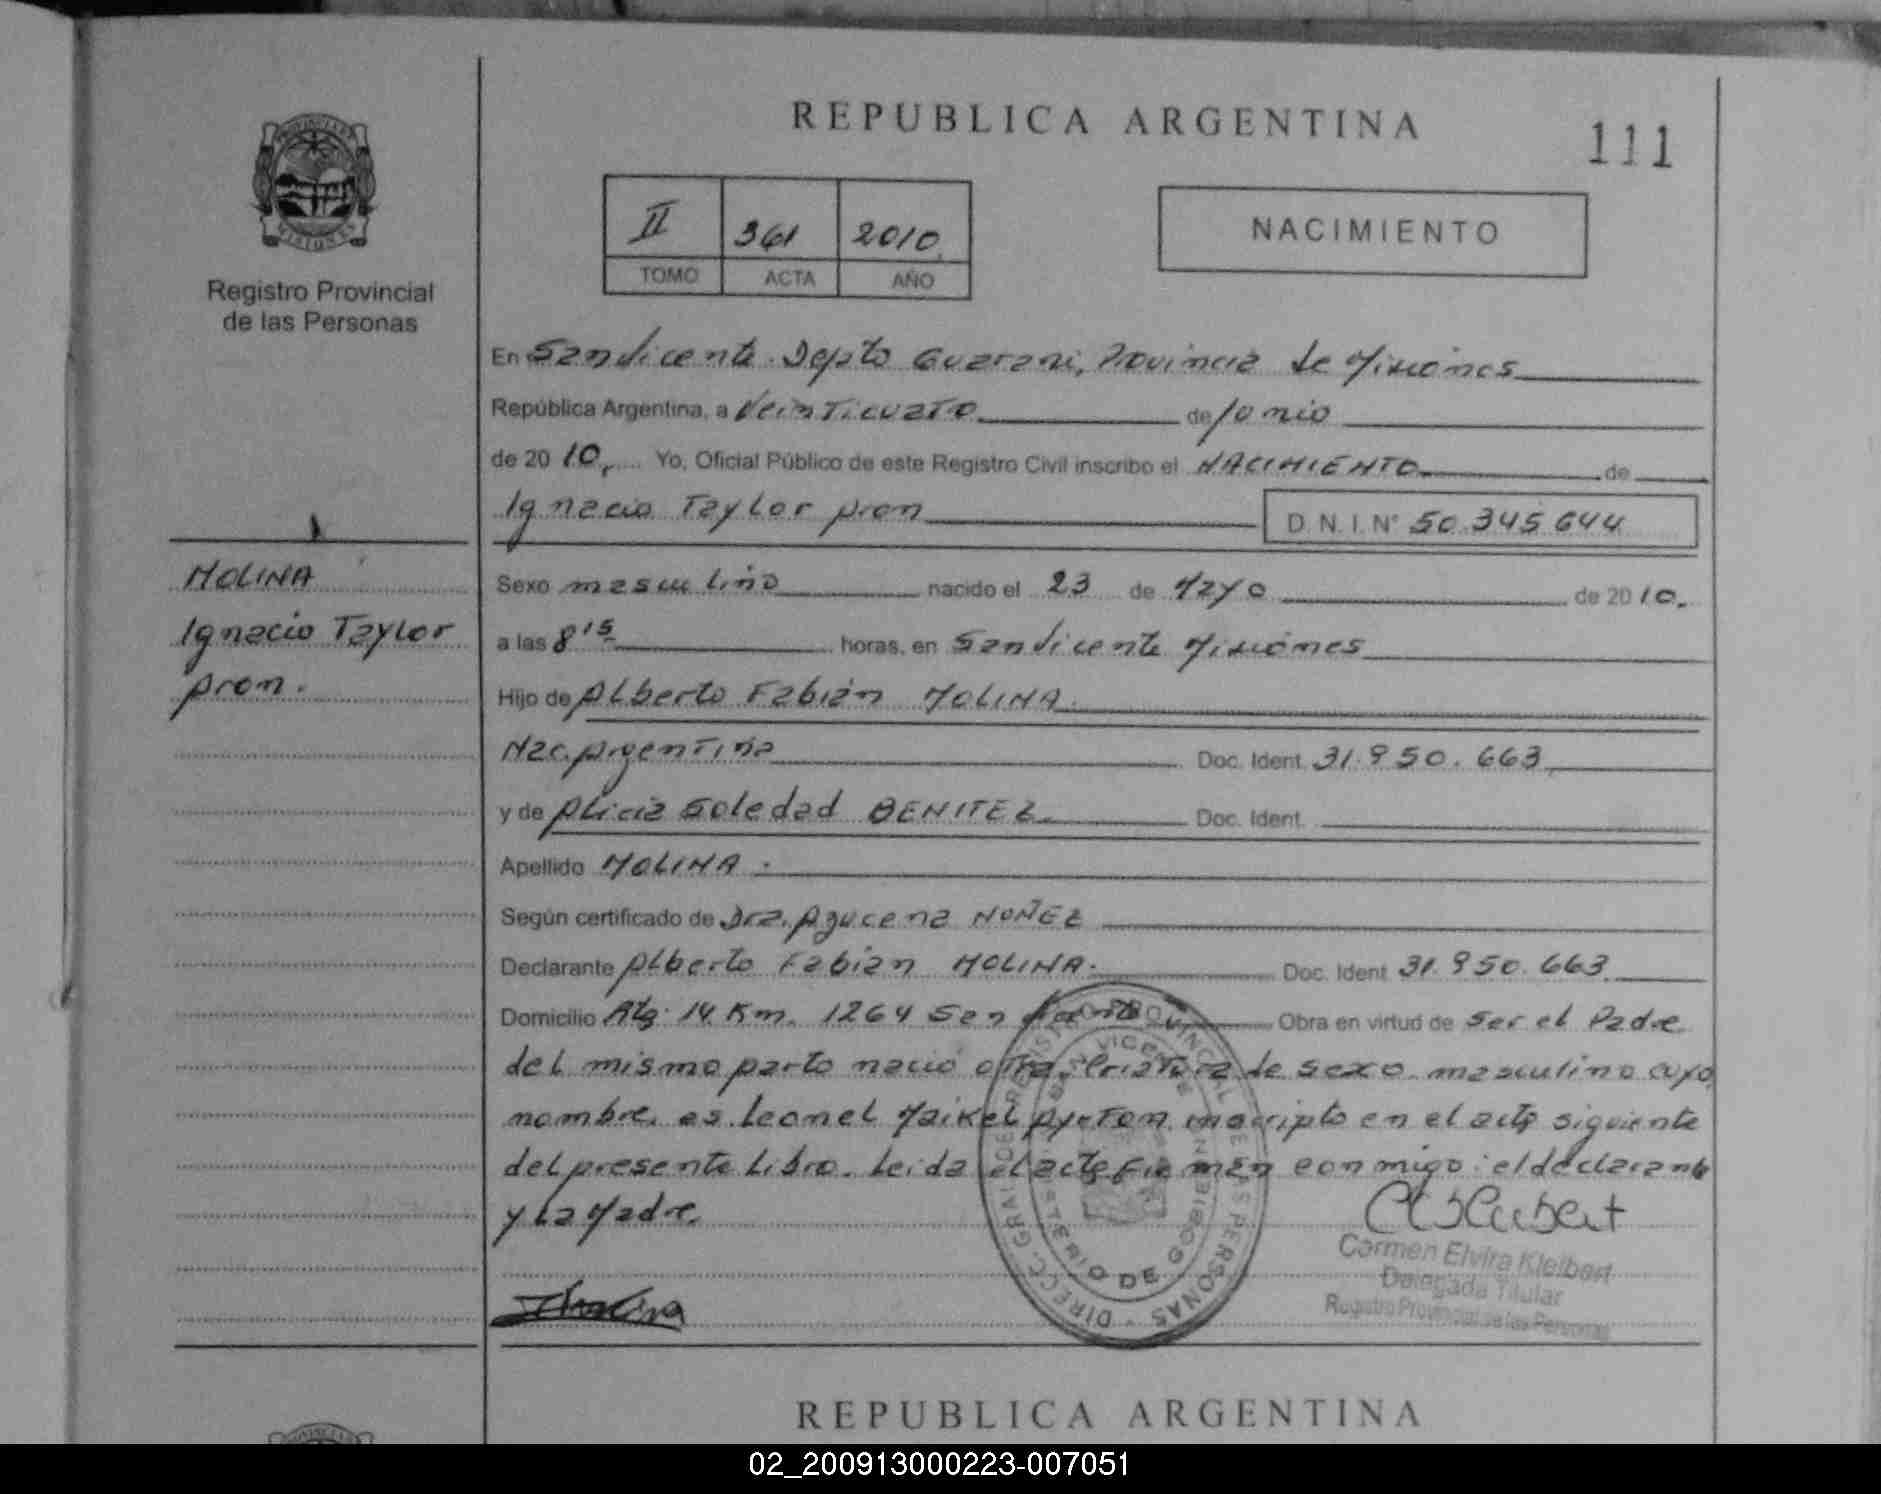 REPUBLICA ARGENTINA
111
PROVINCIA DE
MISIONES
Registro Provincial
de las Personas
II 361 2010
TOMO ACTA AÑO
NACIMIENTO
En San Vicente Depto Guarani, Provincia de Misiones
República Argentina, a Veinticuatro de Junio
de 2010, Yo, Oficial Público de este Registro Civil inscribo el NACIMIENTO de
Ignacio Taylor Aron D. N. I. N° 50.345.644
MOLINA
Ignacio Taylor
Aron.
Sexo masculino nacido el 23 de Mayo de 2010.
a las 8 15 horas, en San Vicente Misiones
Hijo de Alberto Fabián MOLINA
Nac. Argentina Doc. Ident. 31.950.663
y de Alicia Soledad BENITEZ Doc. Ident.
Apellido MOLINA.
Según certificado de Dra. Azucena NUÑEZ
Declarante Alberto Fabian MOLINA. Doc. Ident. 31.950.663
Domicilio Rta 14 Km. 1264 San Vicente Obra en virtud de ser el Padre
del mismo parto nació otra criatura de sexo masculino cuyo
nombre es Leonel Maikel Ayrton inscripto en el acta siguiente
del presente Libro. Leida el acta firman conmigo: el declarante
y La Madre.
Carmen Elvira Kleibert
Delegada Titular
Registro Provincial de las Personas
REPUBLICA ARGENTINA
02_200913000223-007051